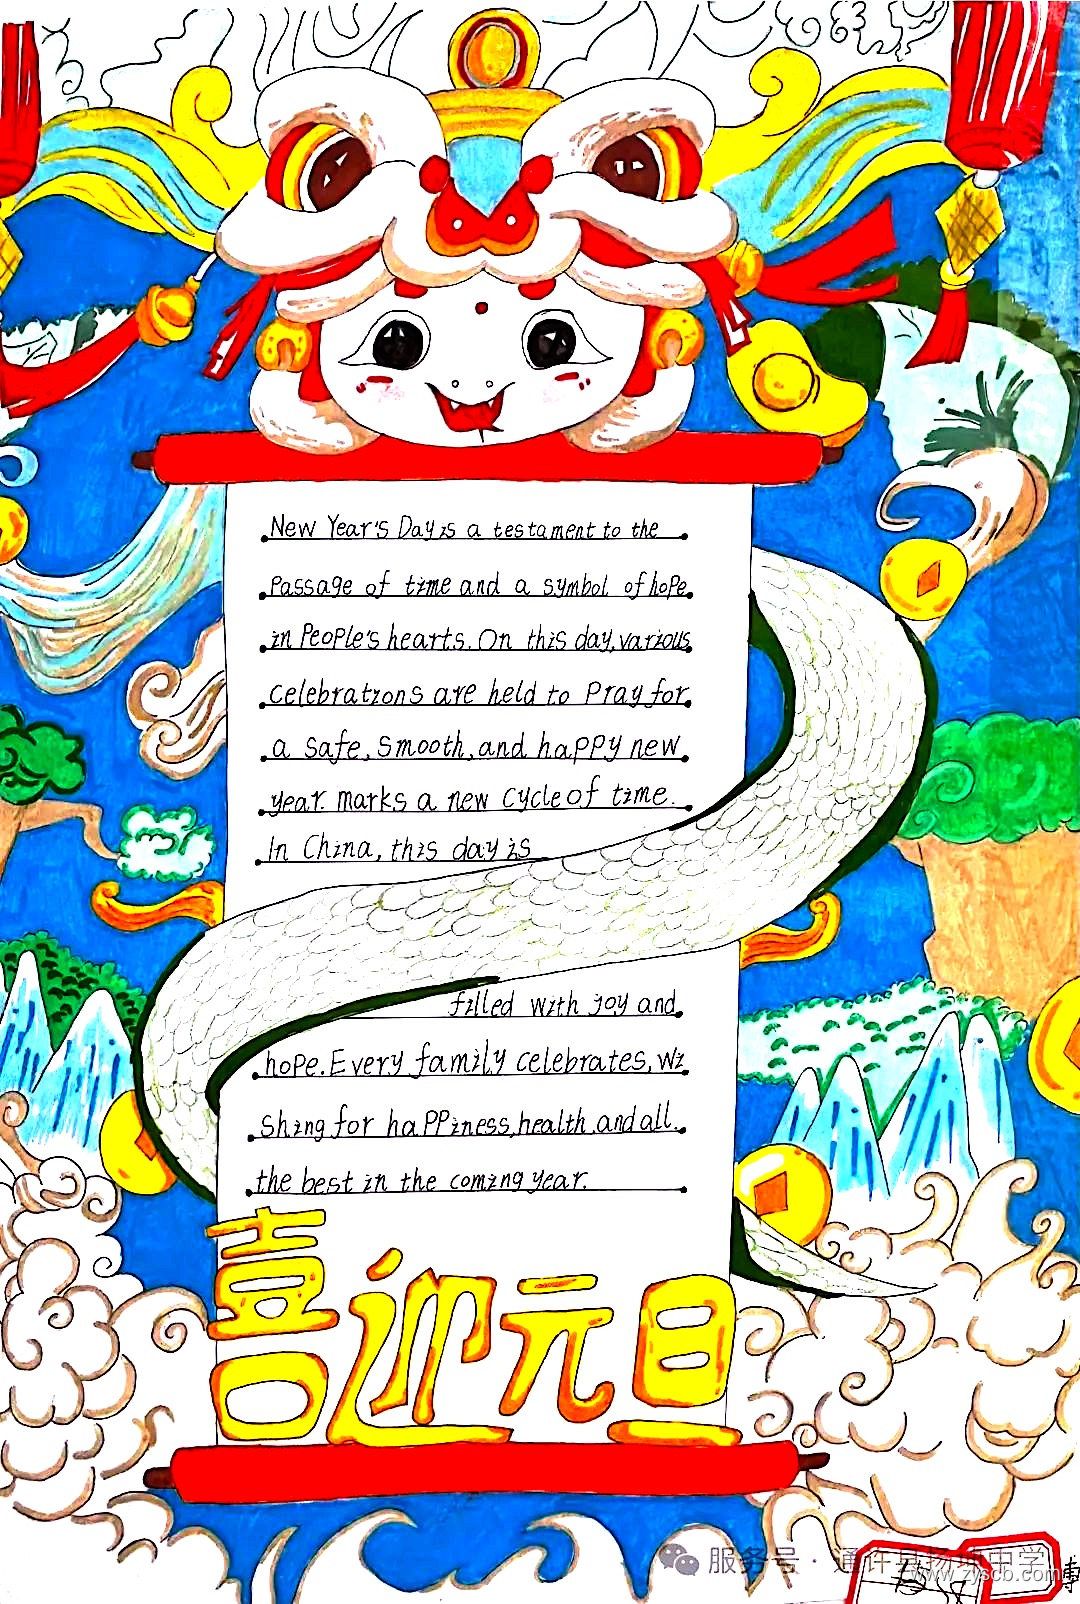 New Year's Day is a testament to the
passage of time and a symbol of hope
in people's hearts. On this day, various
celebrations are held to pray for
a safe, smooth, and happy new
year. marks a new cycle of time.
In China, this day is
filled with joy and
hope. Every family celebrates, wi
shing for happiness, health, and all
the best in the coming year.
喜迎元旦
服务号·通许县扬坤中学
www.zyscb.com